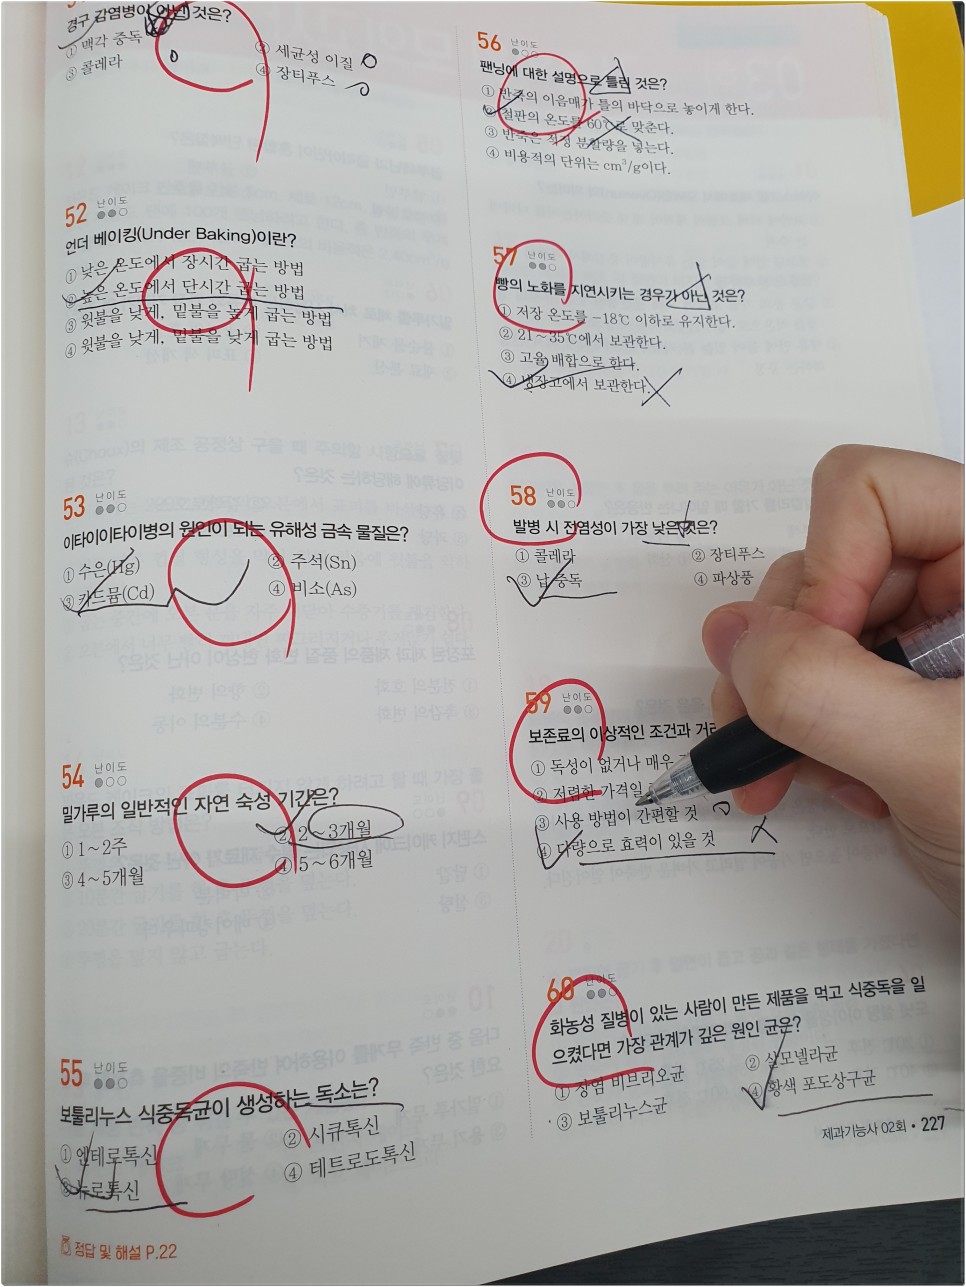 경구 감염병이 아닌 것은?
① 맥각 중독
② 세균성 이질
③ 콜레라
④ 장티푸스
52 난이도
언더 베이킹(Under Baking)이란?
① 낮은 온도에서 장시간 굽는 방법
② 높은 온도에서 단시간 굽는 방법
③ 윗불을 낮게, 밑불을 높게 굽는 방법
④ 윗불을 낮게, 밑불을 낮게 굽는 방법
53 난이도
이타이이타이병의 원인이 되는 유해성 금속 물질은?
① 수은(Hg)
② 주석(Sn)
③ 카드뮴(Cd)
④ 비소(As)
54 난이도
밀가루의 일반적인 자연 숙성 기간은?
① 1~2주
② 2~3개월
③ 4~5개월
④ 5~6개월
55 난이도
보툴리누스 식중독균이 생성하는 독소는?
① 엔테로톡신
② 시큐톡신
③ 뉴로톡신
④ 테트로도톡신
정답 및 해설 P.22
56 난이도
팬닝에 대한 설명으로 틀린 것은?
① 반죽의 이음매가 틀의 바닥으로 놓이게 한다.
② 철판의 온도를 60℃로 맞춘다.
③ 반죽은 적정 분할량을 넣는다.
④ 비용적의 단위는 cm³/g이다.
57 난이도
빵의 노화를 지연시키는 경우가 아닌 것은?
① 저장 온도를 -18℃ 이하로 유지한다.
② 21~35℃에서 보관한다.
③ 고율 배합으로 한다.
④ 냉장고에서 보관한다.
58 난이도
발병 시 전염성이 가장 낮은 것은?
① 콜레라
② 장티푸스
③ 납 중독
④ 파상풍
59 난이도
보존료의 이상적인 조건과 거리
① 독성이 없거나 매우
② 저렴한 가격일
③ 사용 방법이 간편할 것
④ 다량으로 효력이 있을 것
60 난이도
화농성 질병이 있는 사람이 만든 제품을 먹고 식중독을 일
으켰다면 가장 관계가 깊은 원인 균은?
① 장염 비브리오균
② 살모넬라균
③ 보툴리누스균
④ 황색 포도상구균
제과기능사 02회 • 227